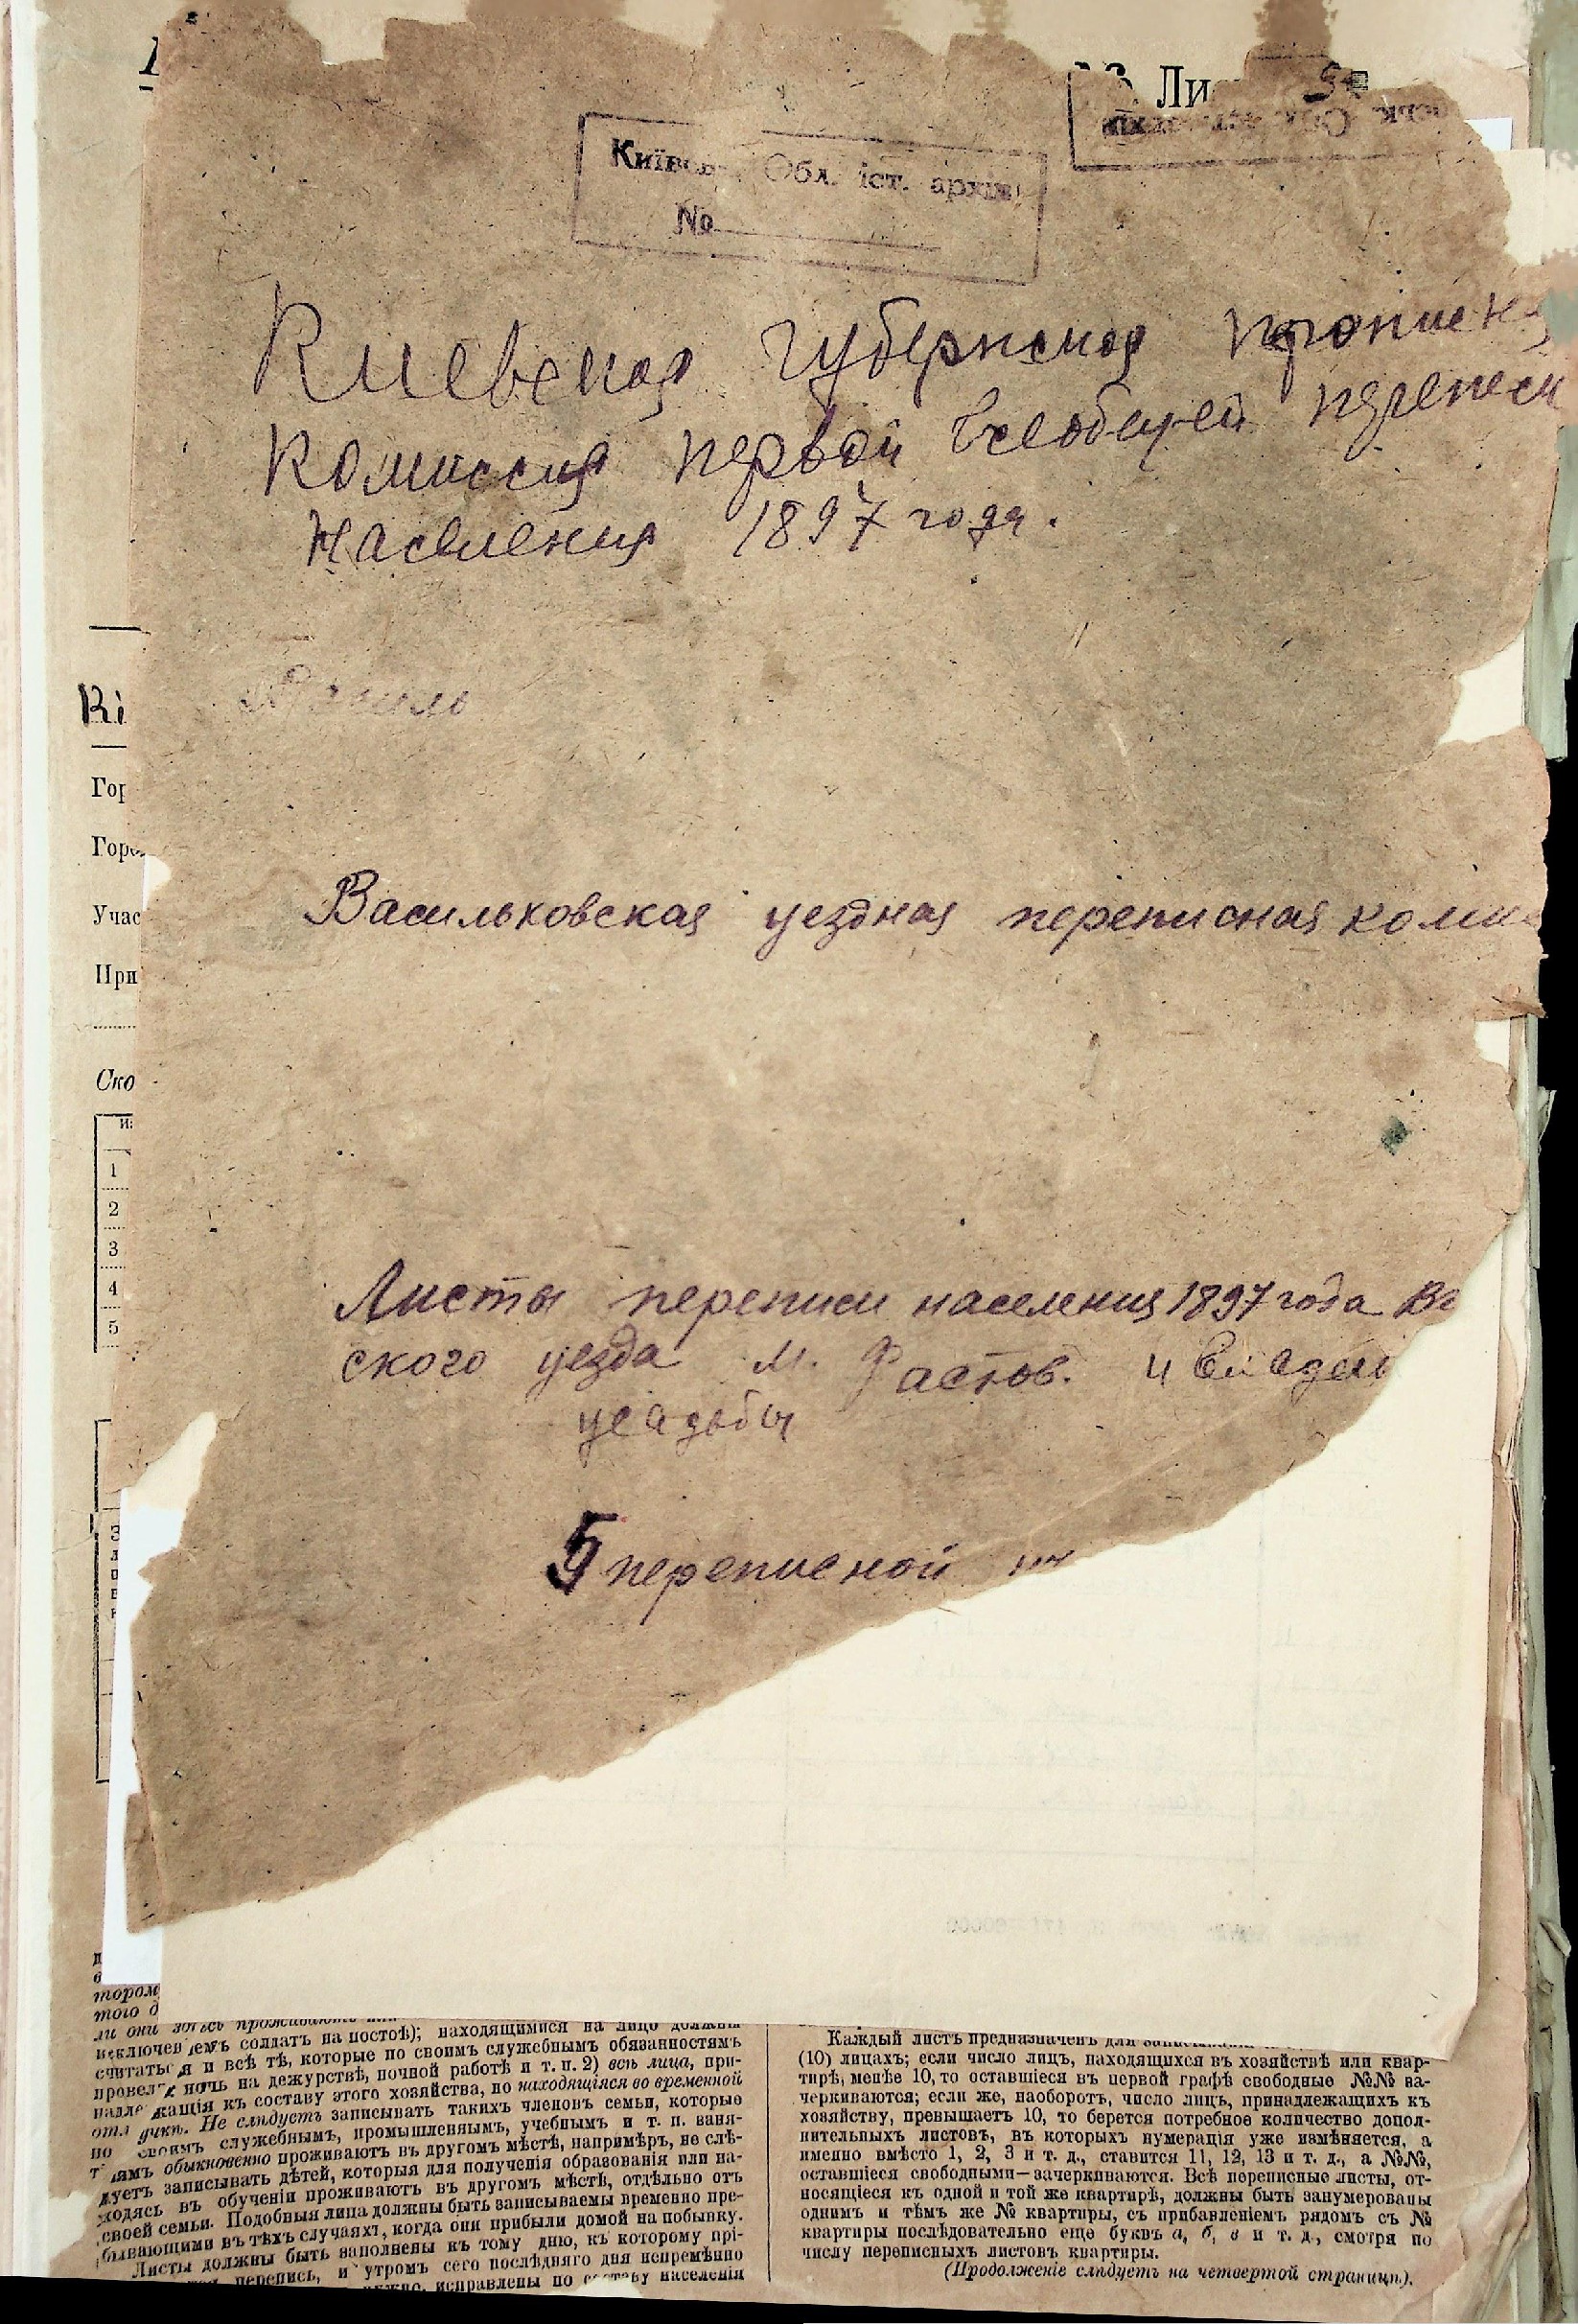 Ли
Київськ Обл. іст. архів
№
Киевская губернская
комиссия первой всеобщей переписи
населения 1897 года.
Василь
Кі
Гор
Горо
Учас
При
Васильковская уездная переписная коми
Ско
1
2
3
4
5
Листы переписи населения 1897 года Ва
ского уезда м. Фастов. и владел
усадьбы
5 переписной
тором
того д
ли они здѣсь проживаютъ
исключеніемъ солдатъ на постоѣ); находящимися на лицо должны
считаться и всѣ тѣ, которые по своимъ служебнымъ обязанностямъ
провели ночь на дежурствѣ, ночной работѣ и т. п. 2) всѣ лица, при-
надлежащія къ составу этого хозяйства, но находящіяся во временной
отлучкѣ. Не слѣдуетъ записывать такихъ членовъ семьи, которые
по своимъ служебнымъ, промышленнымъ, учебнымъ и т. п. заня-
тіямъ обыкновенно проживаютъ въ другомъ мѣстѣ, напримѣръ, не слѣ-
дуетъ записывать дѣтей, которыя для полученія образованія или на-
ходясь въ обученіи проживаютъ въ другомъ мѣстѣ, отдѣльно отъ
своей семьи. Подобныя лица должны быть записываемы временно пре-
бывающими въ тѣхъ случаяхъ, когда они прибыли домой на побывку.
Листы должны быть заполнены къ тому дню, къ которому прі-
перепись, и утромъ сего послѣдняго дня непремѣнно
исправлены по составу населенія
Каждый листъ предназначенъ для
(10) лицахъ; если число лицъ, находящихся въ хозяйствѣ или квар-
тирѣ, менѣе 10, то оставшіеся въ первой графѣ свободные №№ за-
черкиваются; если же, наоборотъ, число лицъ, принадлежащихъ къ
хозяйству, превышаетъ 10, то берется потребное количество допол-
нительныхъ листовъ, въ которыхъ нумерація уже измѣняется, а
именно вмѣсто 1, 2, 3 и т. д., ставится 11, 12, 13 и т. д., а №№,
оставшіеся свободными—зачеркиваются. Всѣ переписные листы, от-
носящіеся къ одной и той же квартирѣ, должны быть занумерованы
однимъ и тѣмъ же № квартиры, съ прибавленіемъ рядомъ съ №
квартиры послѣдовательно еще буквъ а, б, в и т. д., смотря по
числу переписныхъ листовъ квартиры.
(Продолженіе слѣдуетъ на четвертой страницѣ).